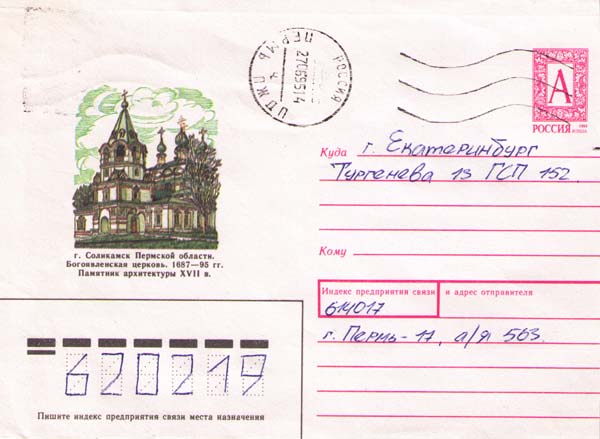 РОССИЯ
ПЕРМЬ
27069514
ЦОЖПИ
А
РОССИЯ
1992
Куда г. Екатеринбург
Тургенева 13 ГСП 152
Кому
г. Соликамск Пермской области.
Богоявленская церковь. 1687—95 гг.
Памятник архитектуры XVII в.
Индекс предприятия связи и адрес отправителя
614017
г. Пермь-17, а/я 563.
620219
Пишите индекс предприятия связи места назначения